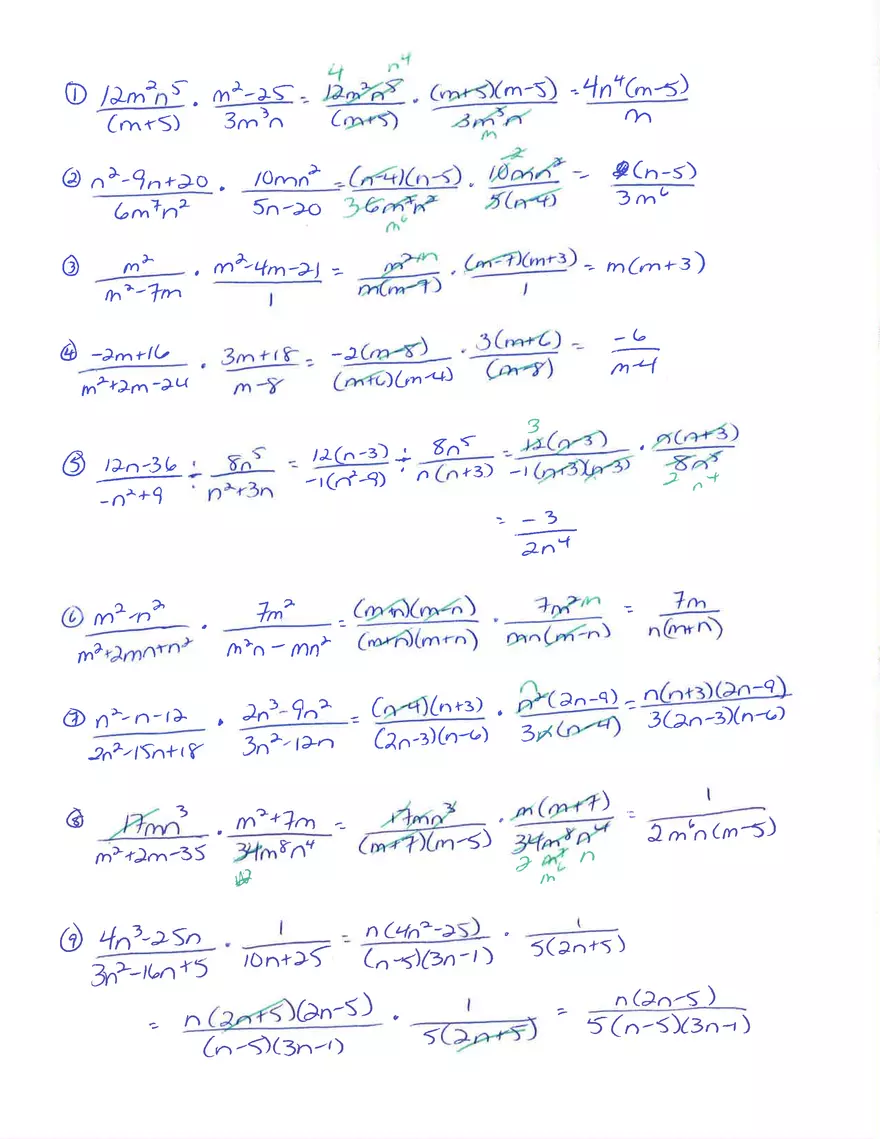 ① 12m²n⁵/(m+5) · m²-25/3m³n = 12m²n⁵/(m+5) · (m+5)(m-5)/3m³n = 4n⁴(m-5)/m
② n²-9n+20/6m⁷n² · 10mn²/5n-20 = (n-4)(n-5)/6m⁷n² · 10mn²/5(n-4) = (n-5)/3m⁶
③ m²/m²-7m · m²-4m-21/1 = m²/m(m-7) · (m-7)(m+3)/1 = m(m+3)
④ -2m+16/m²+2m-24 · 3m+18/m-8 = -2(m-8)/(m+6)(m-4) · 3(m+6)/(m-8) = -6/m-4
⑤ 12n-36/-n²+9 ÷ 8n⁵/n²+3n = 12(n-3)/-1(n²-9) ÷ 8n⁵/n(n+3) = 12(n-3)/-1(n+3)(n-3) · n(n+3)/8n⁵
= -3/2n⁴
⑥ m²-n²/m²+2mn+n² · 7m²/m²n-mn² = (m+n)(m-n)/(m+n)(m+n) · 7m²/mn(m-n) = 7m/n(m+n)
⑦ n²-n-12/2n²-15n+18 · 2n³-9n²/3n²-12n = (n-4)(n+3)/(2n-3)(n-6) · n²(2n-9)/3n(n-4) = n(n+3)(2n-9)/3(2n-3)(n-6)
⑧ 17mn³/m²+2m-35 · m²+7m/34m⁸n⁴ = 17mn³/(m+7)(m-5) · m(m+7)/34m⁸n⁴ = 1/2m⁶n(m-5)
⑨ 4n³-25n/3n²-16n+5 · 1/10n+25 = n(4n²-25)/(n-5)(3n-1) · 1/5(2n+5)
= n(2n+5)(2n-5)/(n-5)(3n-1) · 1/5(2n+5) = n(2n-5)/5(n-5)(3n-1)